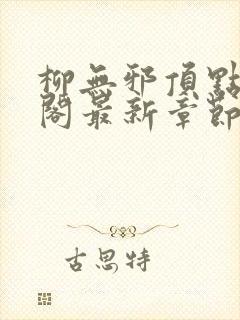 柳無邪頂點
閣最新章節
古思特